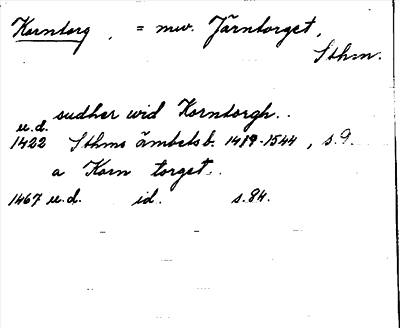 Korntorg, = nuv. Järntorget,
Sthm.
sudher wid Korntorgh..
u.d.
1422 Sthms ämbetsb. 1419-1544, s.9.
a Korn torget..
1467 u.d. id. s.84.